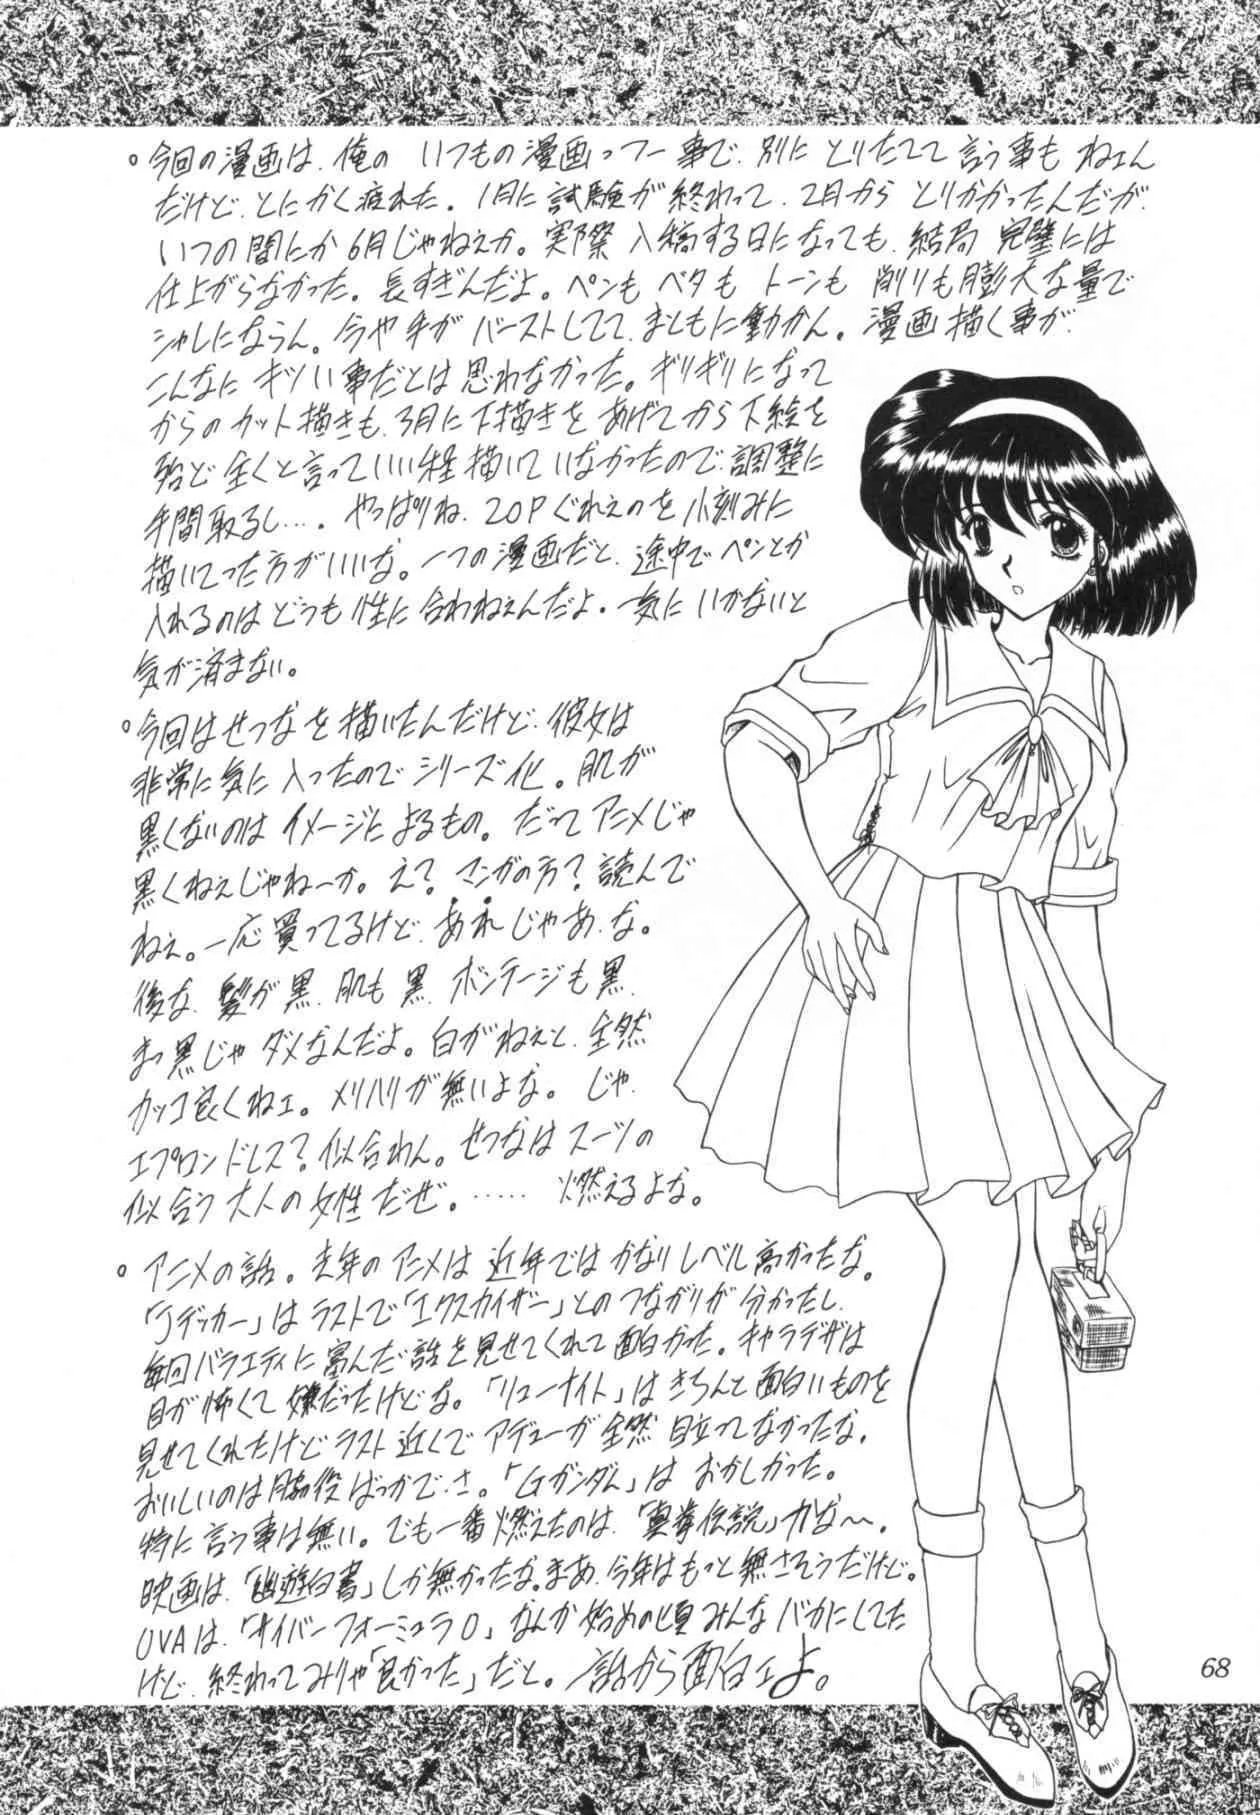 。今回の漫画は、俺の いつもの漫画っつー事で、別に とりたてて 言う事も ねェん
だけど、とにかく疲れた。1月に試験が終わって、2月から とりかかったんだが、
いつの間にか6月じゃねぇか。実際 入稿する日になっても、結局 完璧には
仕上がらなかった。長すぎんだよ。ペンも ベタも トーンも 削りも膨大な量で
シャレにならん。今や手が バーストしてて、まともに動かん。漫画描く事が、
こんなに キツい事だとは 思わなかった。ギリギリになって
からのカット描きも、3月に下描きを あげてから下絵を
殆ど全くと言っていい程描いていなかったので、調整に
手間取るし…。やっぱりね、20Pぐれえのを小刻みに
描いてった方がいいな。一つの漫画だと、途中でペンとか
入れるのは どうも性に合わねぇんだよ。一気に いかないと
気が済まない。
。今回はせつなを描いたんだけど、彼女は
非常に気に入ったのでシリーズ化。肌が
黒くないのは イメージによるもの。だってアニメじゃ
黒くねぇじゃねーか。え?マンガの方?読んで
ねぇ。一応買ってるけど、あれじゃあ、な。
後な、髪が黒、肌も黒、ボンテージも黒、
まっ黒じゃ ダメなんだよ。白がねぇと、全然
カッコ良くねェ。メリハリが無いよな。じゃ、
エプロンドレス?似合わん。せつなはスーツの
似合う大人の女性だぜ。…… 燃えるよな。
。アニメの話。去年のアニメは近年ではかなりレベル高かったな。
「Jデッカー」はラストで「エクスカイザー」とのつながりが分かったし、
毎回バラエティに富んだ話を見せてくれて面白かった。キャラデザは
目が怖くて嫌だったけどな。「リューナイト」はきちんと面白いものを
見せてくれたけどラスト近くでアデューが全然目立ってなかったな。
おいしいのは脇役ばっかでさ。「Gガンダム」は おかしかった。
特に言う事は無い。でも一番燃えたのは、「真拳伝説」かな〜。
映画は、「幽遊白書」しか無かったな。まあ、今年はもっと無さそうだけど。
OVAは、「サイバーフォーミュラ0」、なんか始めの頃みんなバカにしてた
けど、終わってみりゃ「良かった」だと。話から面白ェよ。
68